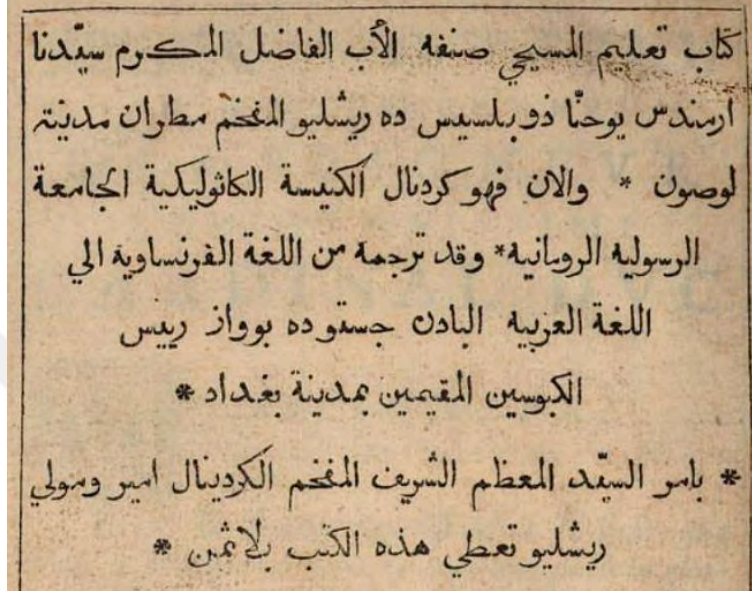 كتاب تعليم المسيحي صنفه الأب الفاضل المكرم سيّدنا
ارمندس يوحنّا ذو بلسيس ده ريشليو المفخم مطران مدينة
لوصون * والان فهو كردنال الكنيسة الكاثوليكية الجامعة
الرسولية الرومانية* وقد ترجمه من اللغة الفرنساوية الي
اللغة العربية البادن جستو ده بوواز رييس
الكبوسين المقيمين بمدينة بغداد *
* بامر السيّد المعظم الشريف المفخم الكردينال امير ومولي
ريشليو تعطي هذه الكتب بلا ثمن *